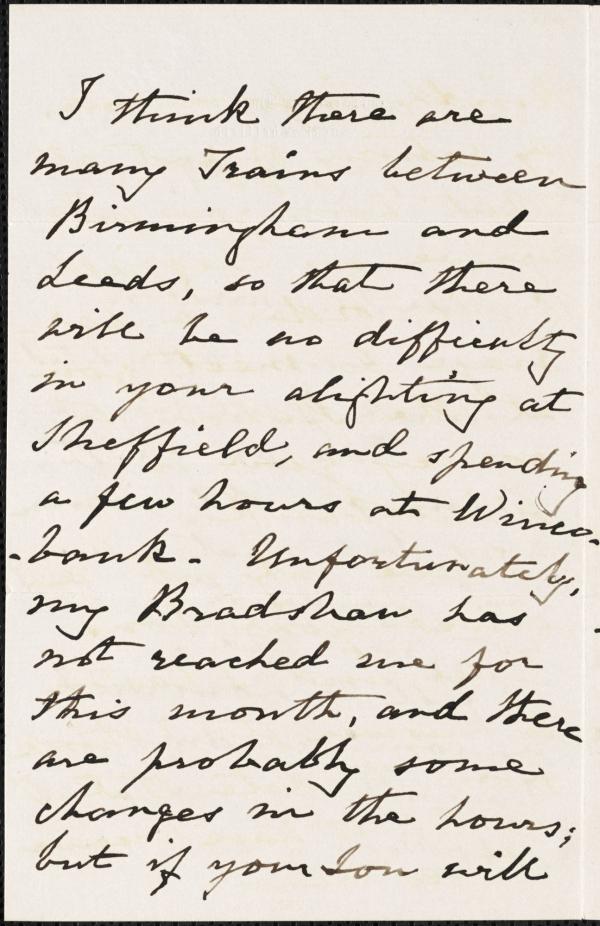 I think there are
many Trains between
Birmingham and
Leeds, so that there
will be no difficulty
in your alighting at
Sheffield, and spending
a few hours at Winco-
-bank. Unfortunately,
my Bradshaw has
not reached me for
this month, and there
are probably some
changes in the hours;
but if your Son will